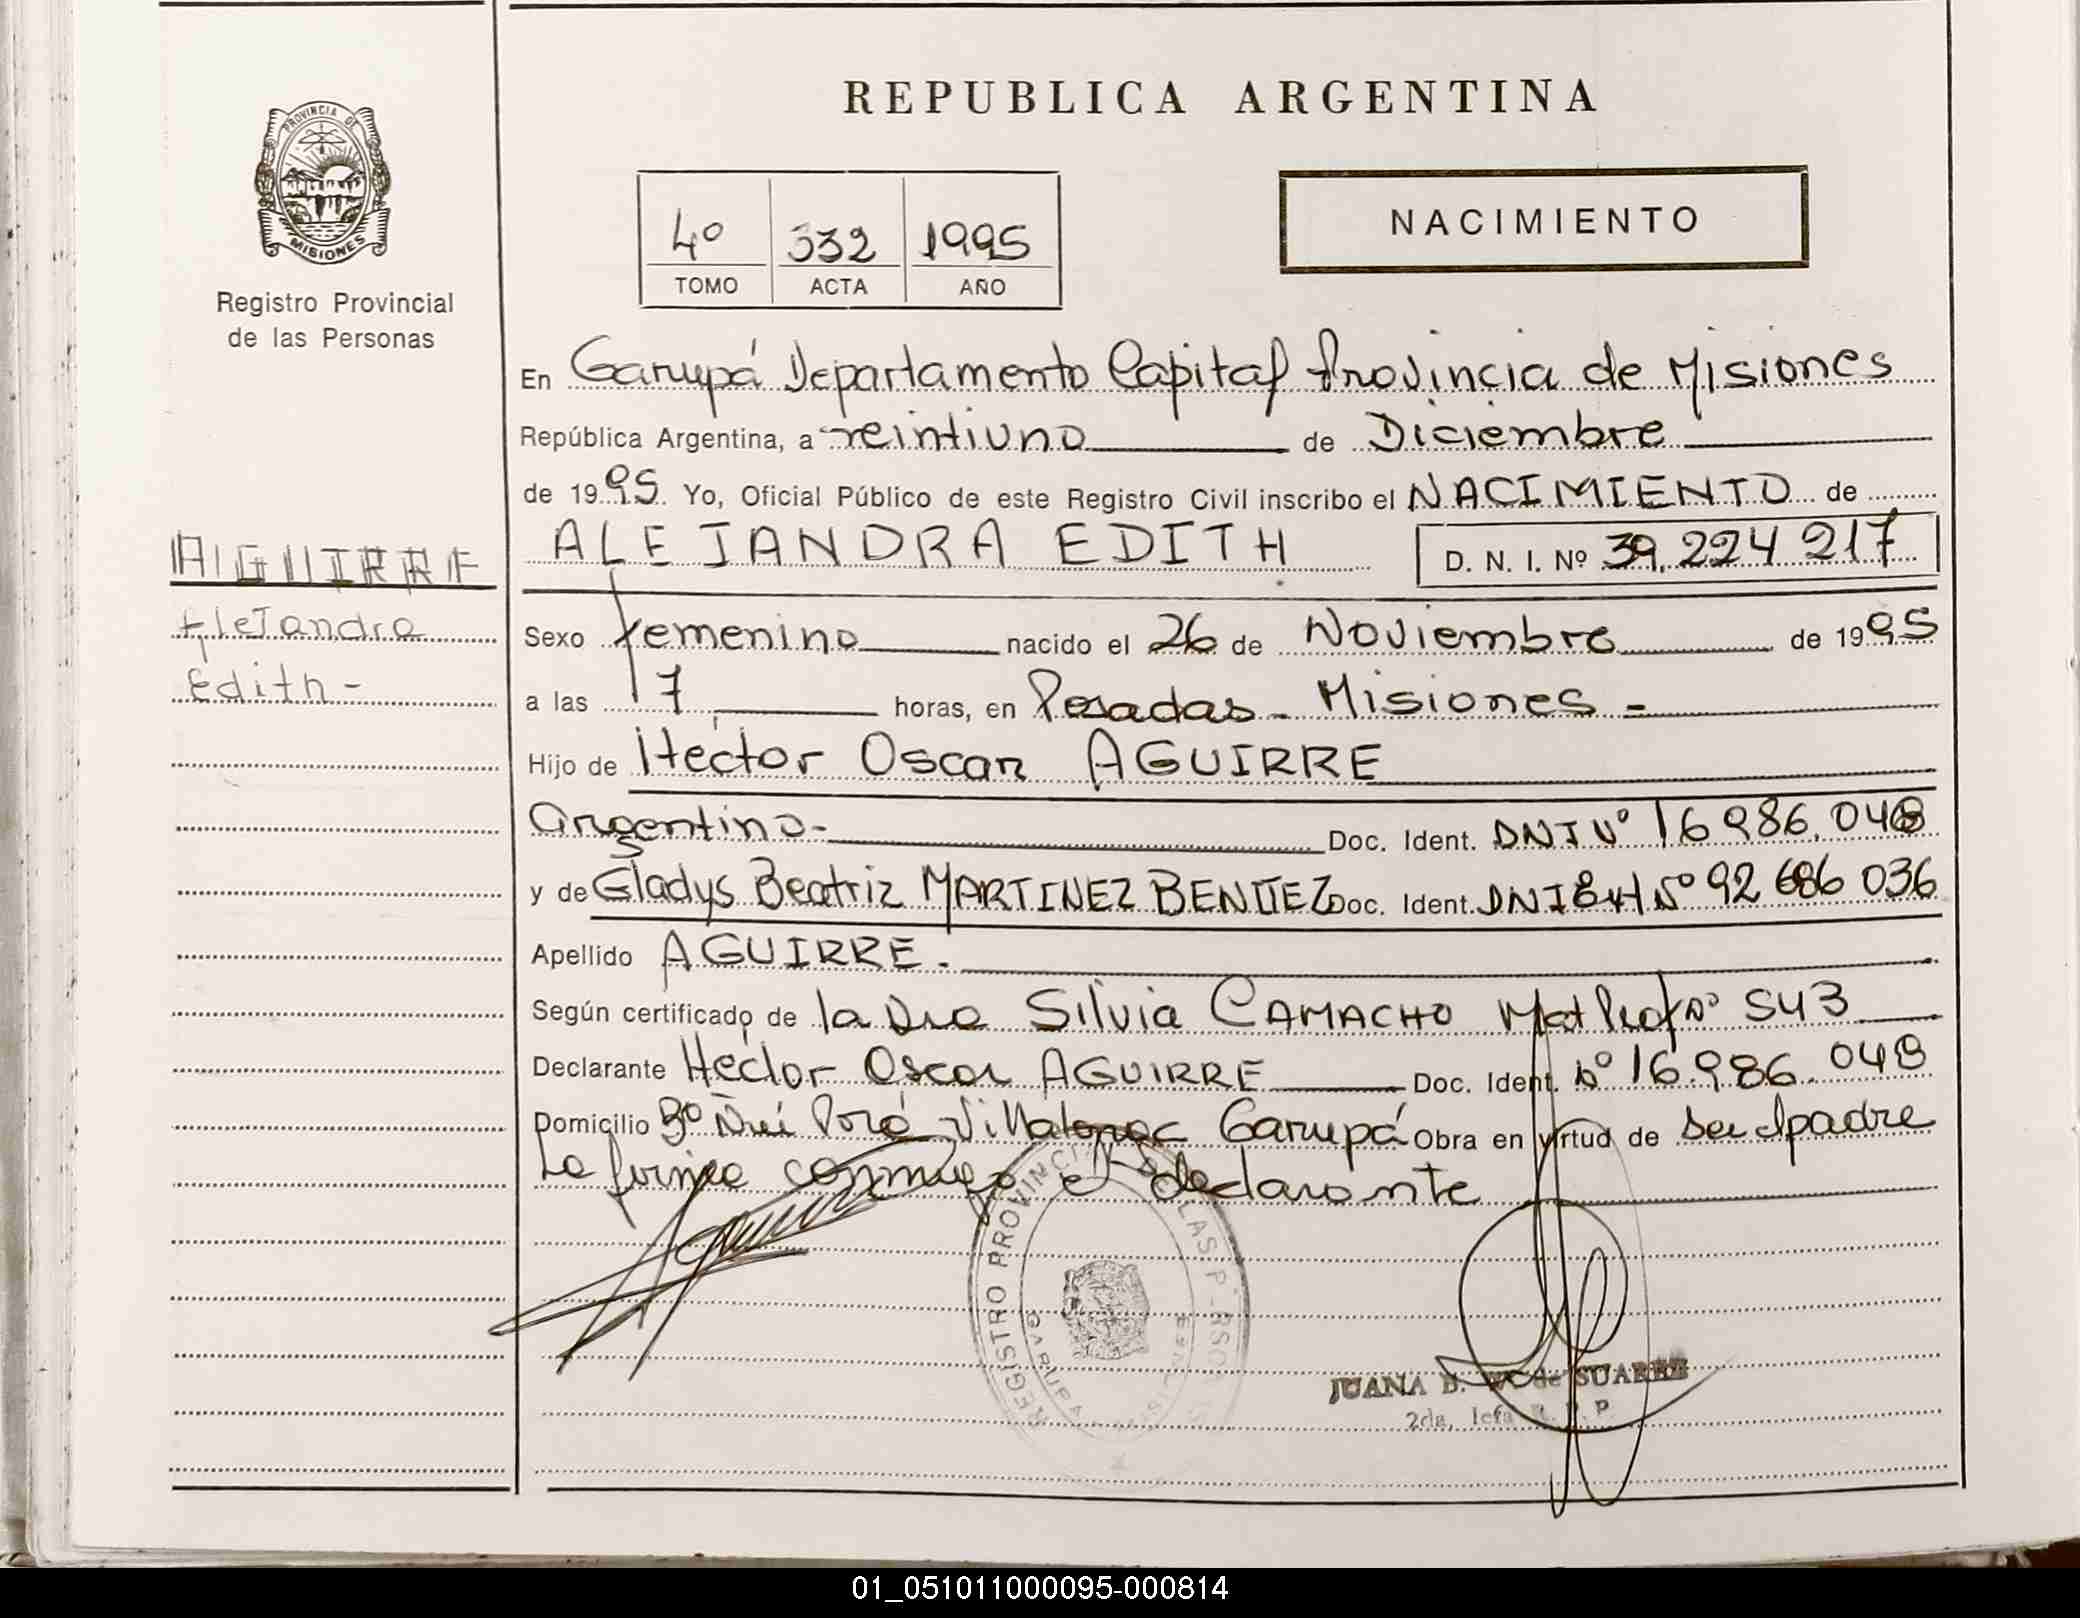 REPUBLICA ARGENTINA
PROVINCIA DE
MISIONES
Registro Provincial
de las Personas
4º 332 1995
TOMO ACTA AÑO
NACIMIENTO
En Garupá Departamento Capital Provincia de Misiones
República Argentina, a veintiuno de Diciembre
de 1995 Yo, Oficial Público de este Registro Civil inscribo el NACIMIENTO de
ALEJANDRA EDITH D. N. I. Nº 39.224 217
AGUIRRE
Alejandra
Edith -
Sexo femenino nacido el 26 de Noviembre de 1995
a las 17 horas, en Posadas - Misiones -
Hijo de Hector Oscar AGUIRRE
argentino - Doc. Ident. DNI Nº 16 986.048
y de Gladys Beatriz MARTINEZ BENITEZ Doc. Ident. DNI Nº 92 686 036
Apellido AGUIRRE.
Según certificado de la Dra Silvia CAMACHO Mat Prof Nº 543
Declarante Hector Oscar AGUIRRE Doc. Ident. Nº 16.986.048
Domicilio Bº Ñu Porá Villalonga Garupá Obra en virtud de ser el padre
La firma conmigo el declarante
REGISTRO PROVINCIAL DE LAS PERSONAS
GARUPA
MISIONES
JUANA de SUAREZ
2da. Jefa R. P. P.
01_051011000095-000814